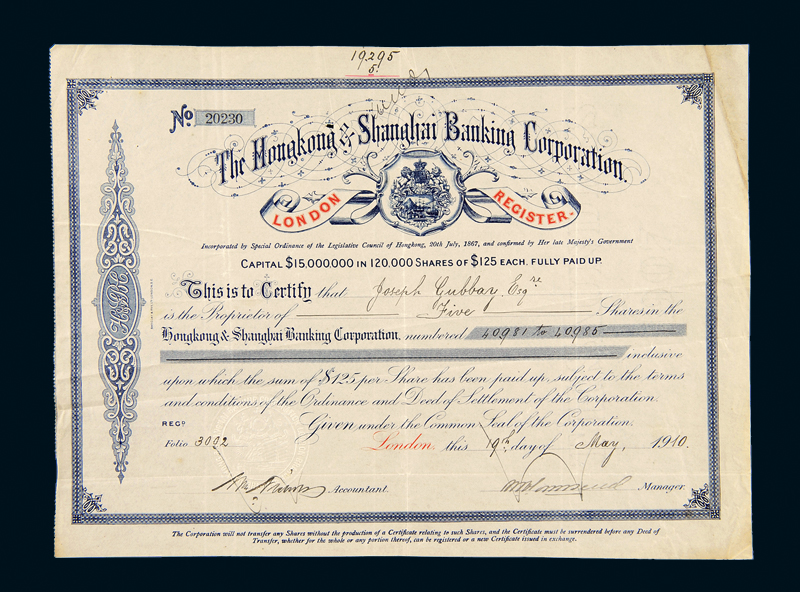 19295
5
No 20230
The Hongkong & Shanghai Banking Corporation.
LONDON REGISTER.
Incorporated by Special Ordinance of the Legislative Council of Hongkong, 20th July, 1867, and confirmed by Her late Majesty's Government
CAPITAL $15,000,000 IN 120,000 SHARES OF $125 EACH. FULLY PAID UP.
This is to Certify that Joseph Gubbay Esqre
is the Proprietor of Five Shares in the
Hongkong & Shanghai Banking Corporation, numbered 40981 to 40985
inclusive
upon which the sum of $125 per Share has been paid up, subject to the terms
and conditions of the Ordinance and Deed of Settlement of the Corporation.
REGD
Given under the Common Seal of the Corporation.
Folio 3002 London, this 19th day of May, 1910.
Accountant. Manager.
The Corporation will not transfer any Shares without the production of a Certificate relating to such Shares, and the Certificate must be surrendered before any Deed of
Transfer, whether for the whole or any portion thereof, can be registered or a new Certificate issued in exchange.